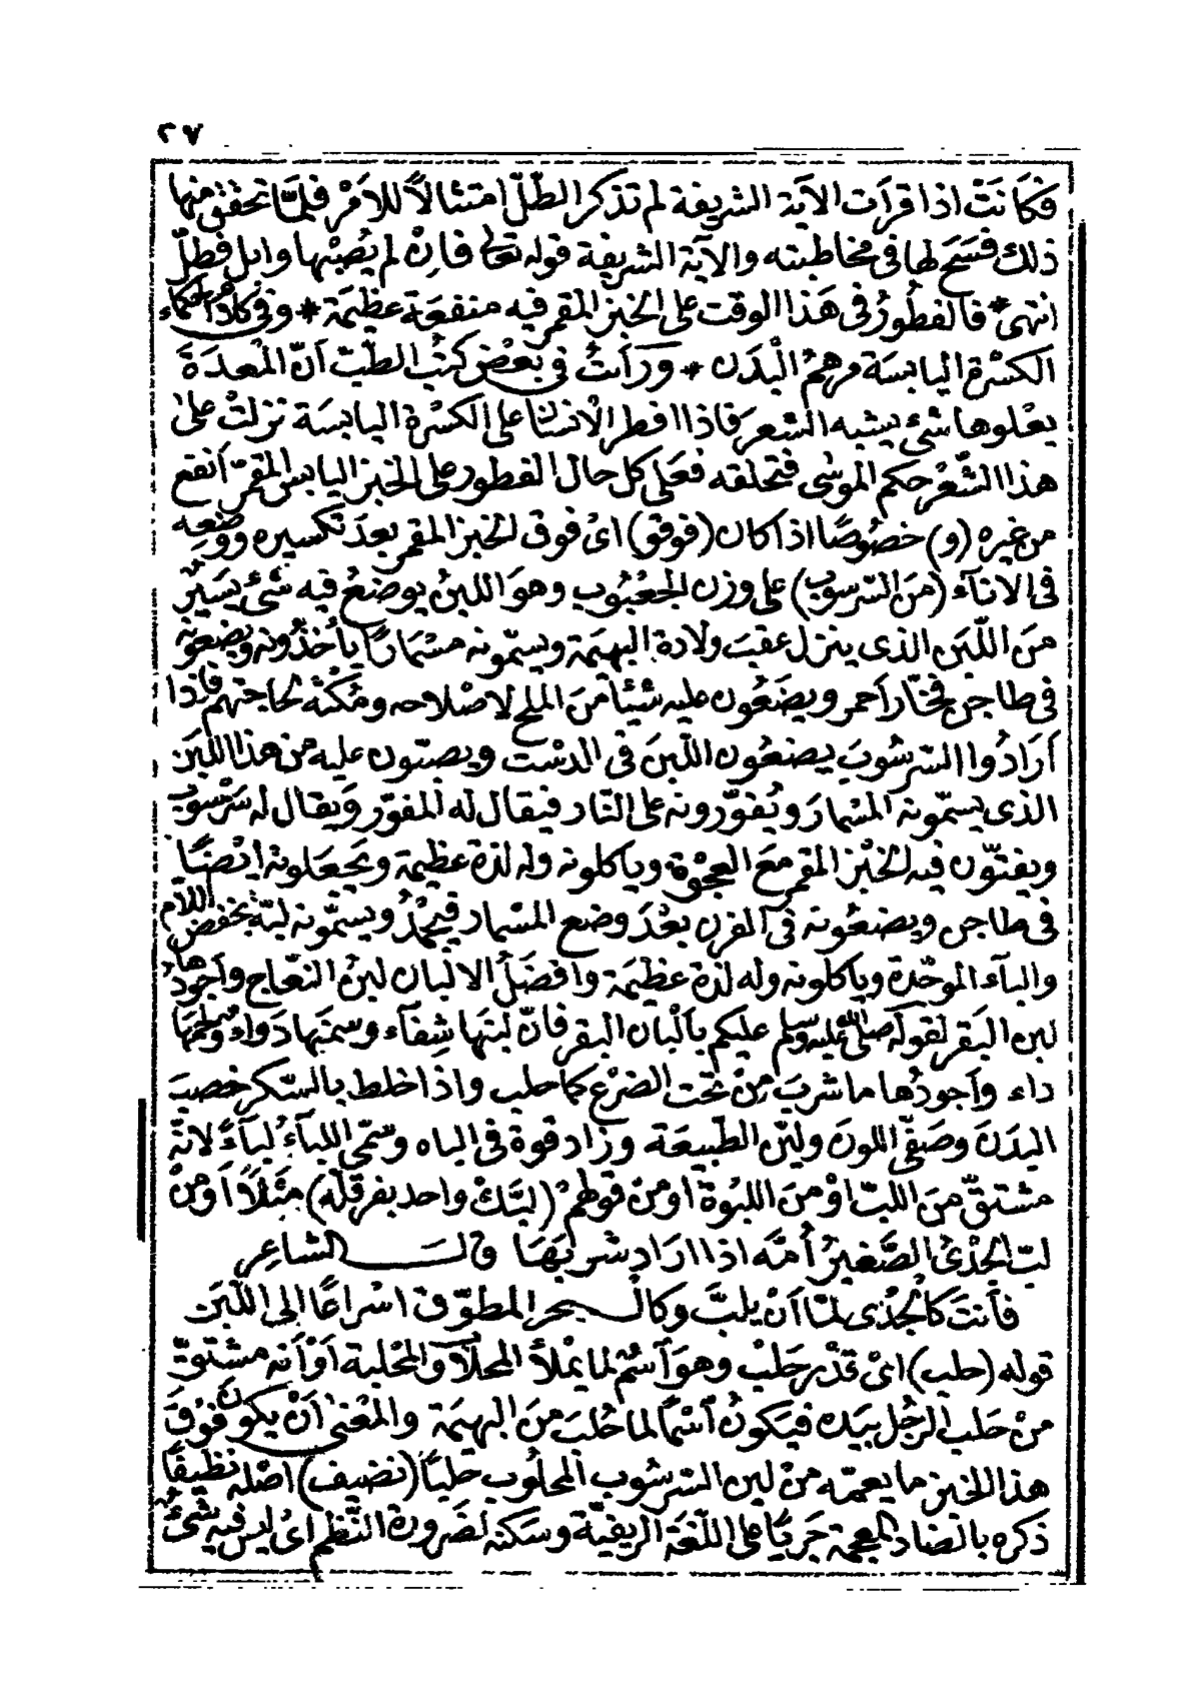 ٢٧
فكَانَتْ اذا قرأت الآية الشريفة لم تذكر الطّلّ امتثالاً للاَمْر فلمّا تحقق منها
ذلك فسَمَح لها فى مخاطبته والآية الشريفة قوله تعالى فاِنْ لم يُصِبْها وابل فطلّ
انتهى * فالفطُورُ فى هَذا الوقت على الخبز المقمر فيه منفعَة عظيمَة * وفى كلام الحكماء
الكسْرة اليابسَة مرهمُ الْبدَن * ورَأتُ فى بعْض كتُب الطّبّ اَنّ المْعدَةَ
يعْلوها شئ يشبه الشعر فاذا افطر الْانسَان على الكسْرة اليابسَة نزلتْ على
هذا الشّعْر حكم الموسٰى فتحلقه فعَلى كل حال الفطور على الخبز اليابس المقمّر اَنفع
من غيره (و) خصُوصًا اذا كان (فوقو) اىْ فوق الخبز المقمر بعدَ تكسيره ووَضعِه
فى الانآء (مَن السّرسُوب) على وزن الجعْبُوب وهوَ اللبنُ يوضعُ فيه شئ يسَيْر
منَ اللّبَن الذى ينزل عقبَ ولادة البهيمَة ويسمّونه مسْمارًا يأخذُونه ويضعونه
فى طاجن فخّار اَحمر ويضَعُون عليه شيْئا منَ الملح لاصْلاحه ومُكثه لحاجتهم فاذا
اَرَادُوا السّرسُوبَ يضعُون اللّبنَ فى الدسْت ويصبّون عليه من هذا اللّبَن
الذى يسمّونه المسْمارَ ويُفوّرونه على النّار فيقال له المفوّر وَيقال له سَرْسوب
ويفتّون فيه الخبْز المقمر معَ العجْوة وياكلونه وله لذة عظيمة ويَجعَلونه ايْضًا
فى طاجن ويضعُونه فى الفرن بعْدَ وضع المسْمار فيجمْدُ ويسَمّونه لبَّة بخفض اللّام
والبآء الموحّدة وياكلونه وله لذة عظيمَة وافضَلُ الالبان لبنُ النعاج وَاَجودُها
لبن البَقر لقوله صلى الله عليه وسلم عليكم بألْبان البقر فانّ لبنَها شِفآء وسمنَها دَواء ولحمَها
داء وأجودُها ما شربَ مِنْ تحْت الضرْع كما حلب واذا خلط بالسّكر خصبَ
البدَنَ وصَفّى اللونَ وليّن الطّبيعَة وزاد قوة فى الباه وسمّى اللبأءُ لبآءً لانّه
مشتقّ منَ اللبّ اوْ منَ اللبُوة او منَ قولهمْ (لبّتكْ واحد بفرقله) مثَلًا اَوْ منْ
لبّ الجدْىُ الصَّغيرُ اُمّه اذا ارَاد شربَهَا قال الشاعِر
فأنتَ كالجْدْى لمّا اَنْ يلبَّ وكال بحر المطوّف اسْراعًا الى اللّبَن
قوله (حلب) اىْ قدْر حَلبْ وهوَ اَسْمٌ لما يمْلأُ المحلَاب والمحْلبة اَوْ اَنه مشتَقّ
منْ حَلب الرجُل بيَده فيَكونُ اَسْمًا لما حُلبَ منَ البهيمَة والمعْنى اَنْ يكونَ فوْقَ
هذا الخبز ما يعمّه منْ لبن السّرسُوب المحلُوب حلباً (نضيف) اصْله نظيفًا
ذكره بالضاد المعجمة جَريًا على اللّغَة الريفيّة وسَكنه لضَرورة النّظم اىْ ليس فيه شئ